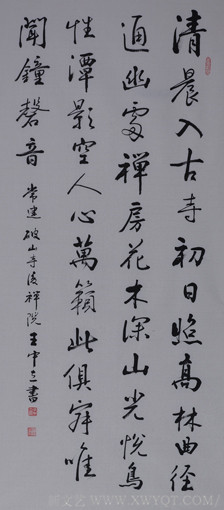 清晨入古寺初日照高林曲径
通幽處禪房花木深山光悦鳥
性潭影空人心萬籟此俱寂唯
聞鐘磬音 常建破山寺後禅院 王中立書
WWW.XWYQT.COM